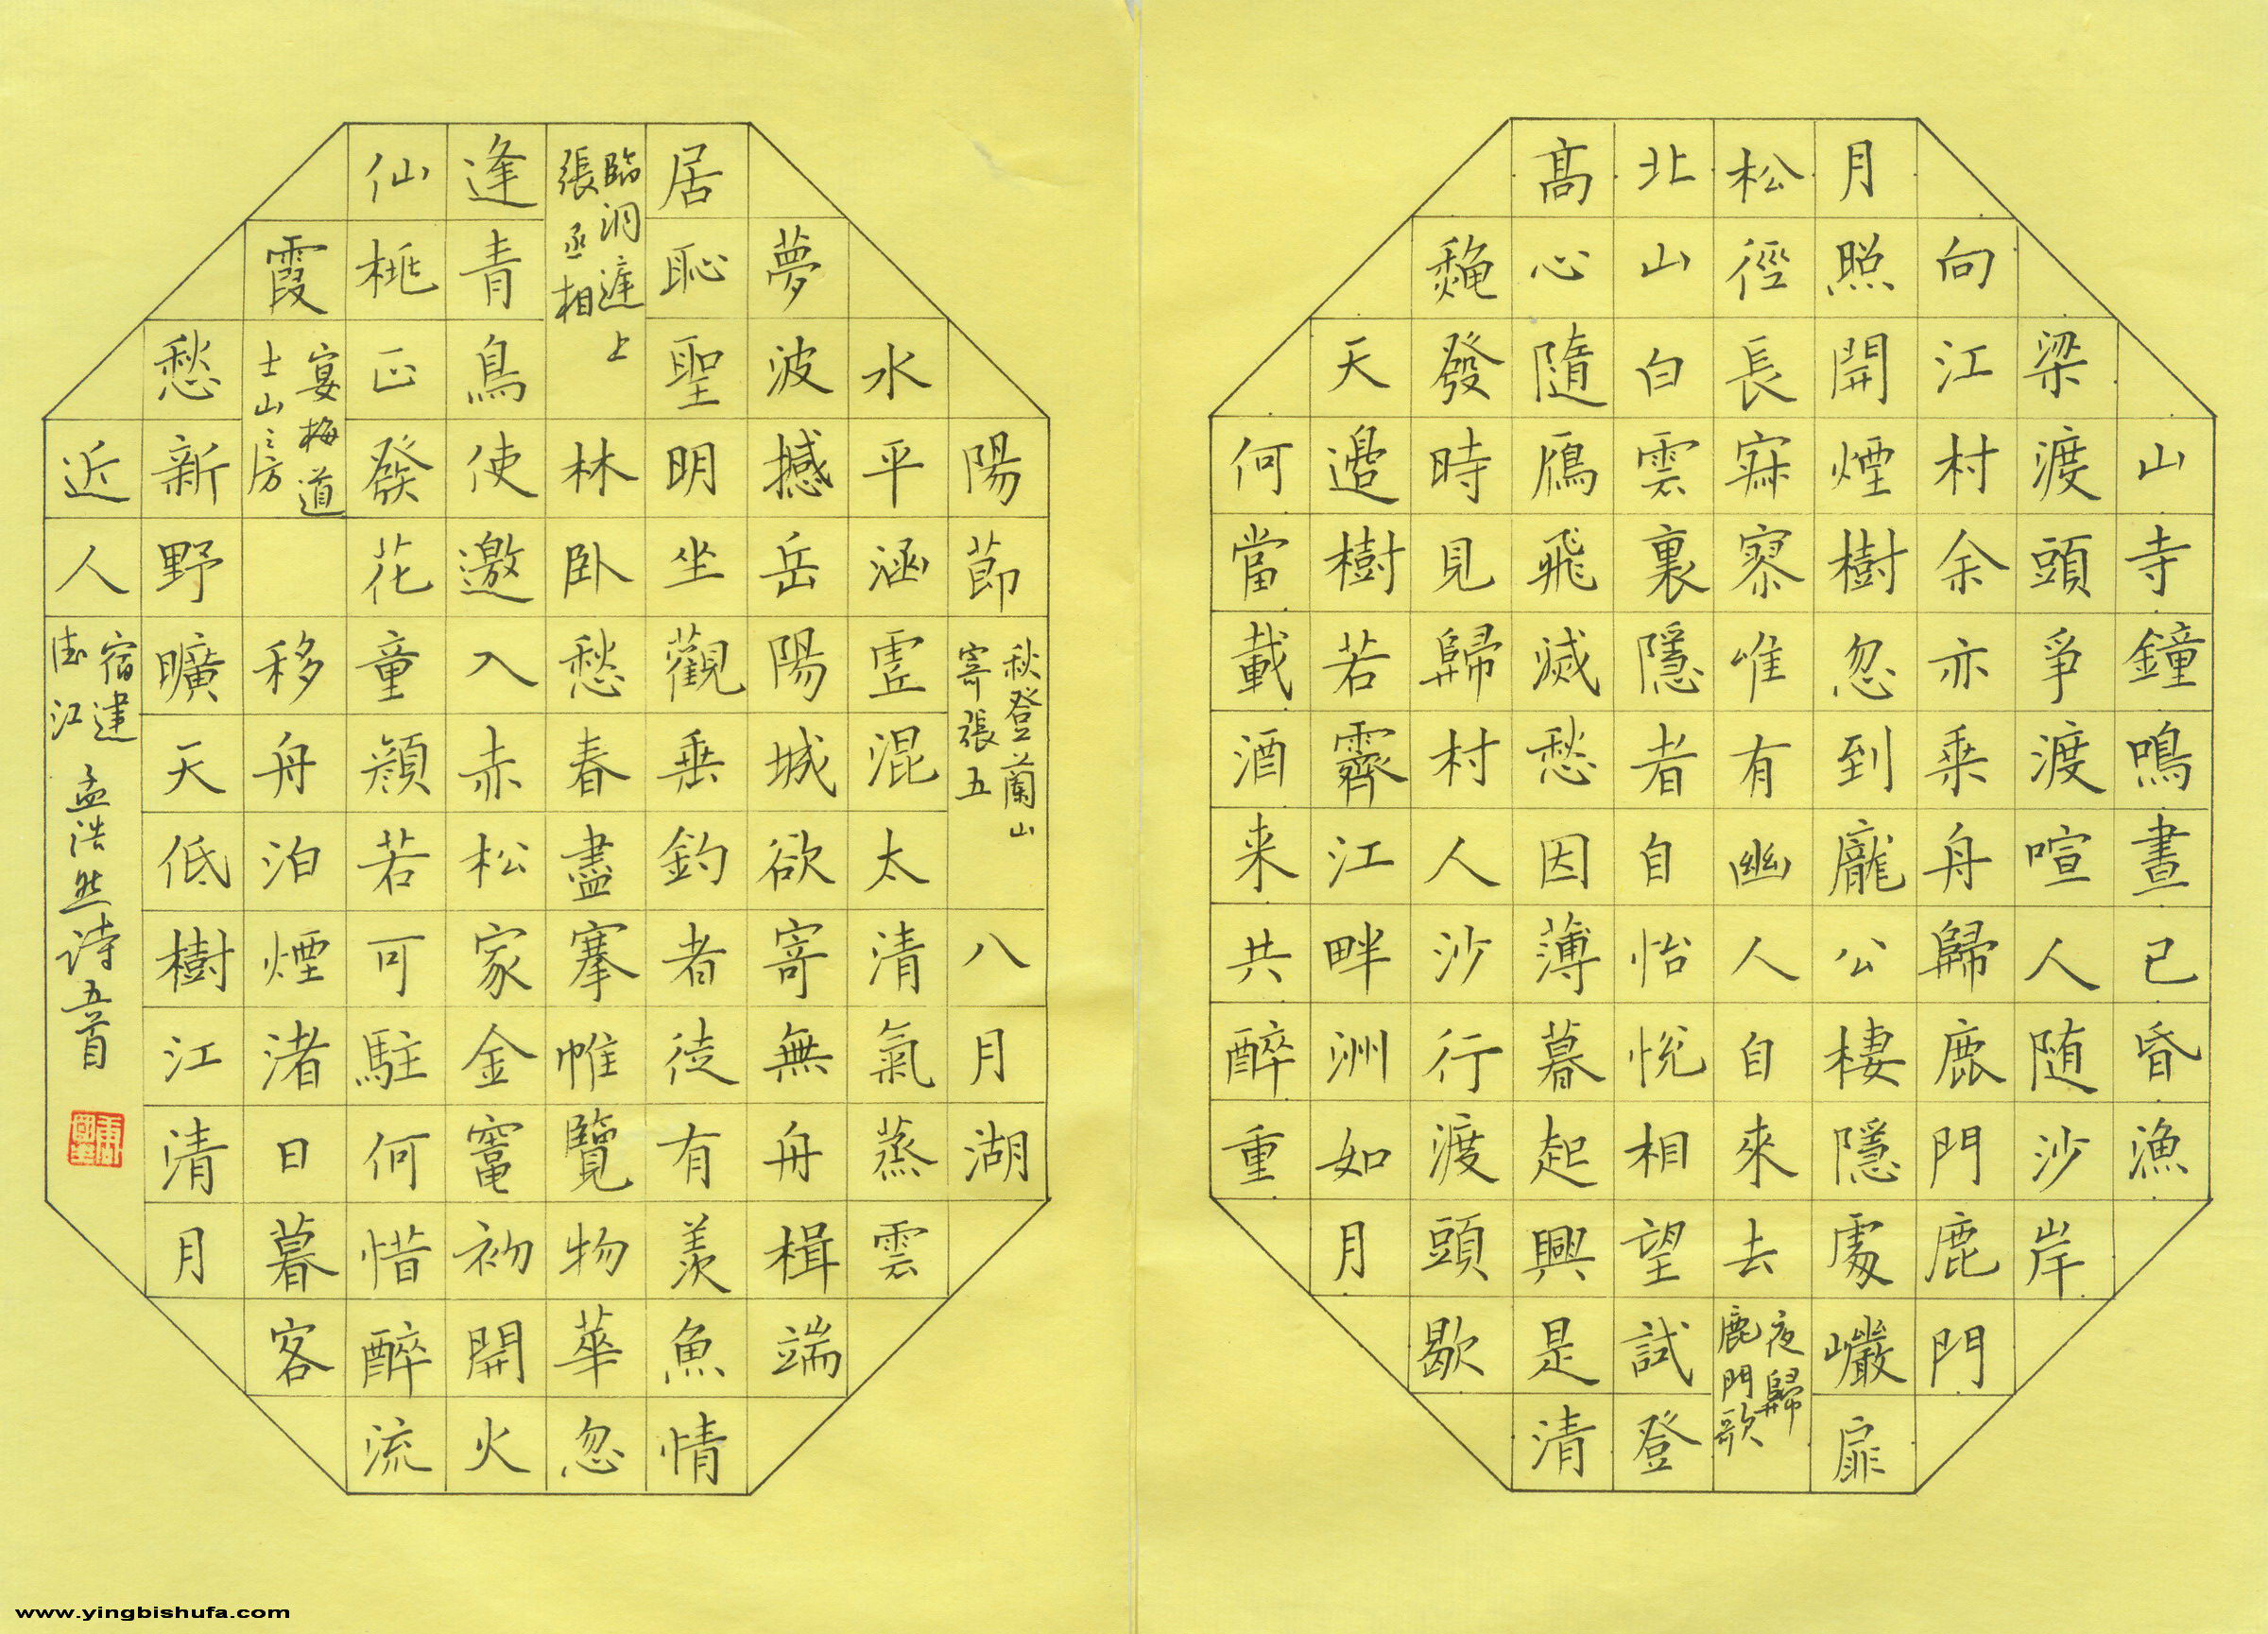 山寺鐘鳴晝已昏漁
梁渡頭爭渡喧人随沙岸
向江村余亦乗舟歸鹿門鹿門
月照開煙樹忽到龐公棲隱處巗扉
松徑長寂寥唯有幽人自來去
夜歸
鹿門歌
北山白雲裏隱者自怡悅相望試登
髙心隨鴈飛滅愁因薄暮起興是清
龝發時見歸村人沙行渡頭歇
天邊樹若霽江畔洲如月
何當載酒来共醉重
陽節
秋登蘭山
寄張五
八月湖
水平涵虛混太清氣蒸雲
夢波撼岳陽城欲寄無舟楫端
居恥聖明坐觀垂釣者徒有羨魚情
臨洞庭上
張丞相
林臥愁春盡搴帷覽物華忽
逢青鳥使邀入赤松家金竈初開火
仙桃正發花童顏若可駐何惜醉流
霞
宴梅道
士山之房
移舟泊煙渚日暮客
愁新野曠天低樹江清月
近人
宿建
德江
孟浩然诗五首
www.yingbishufa.com